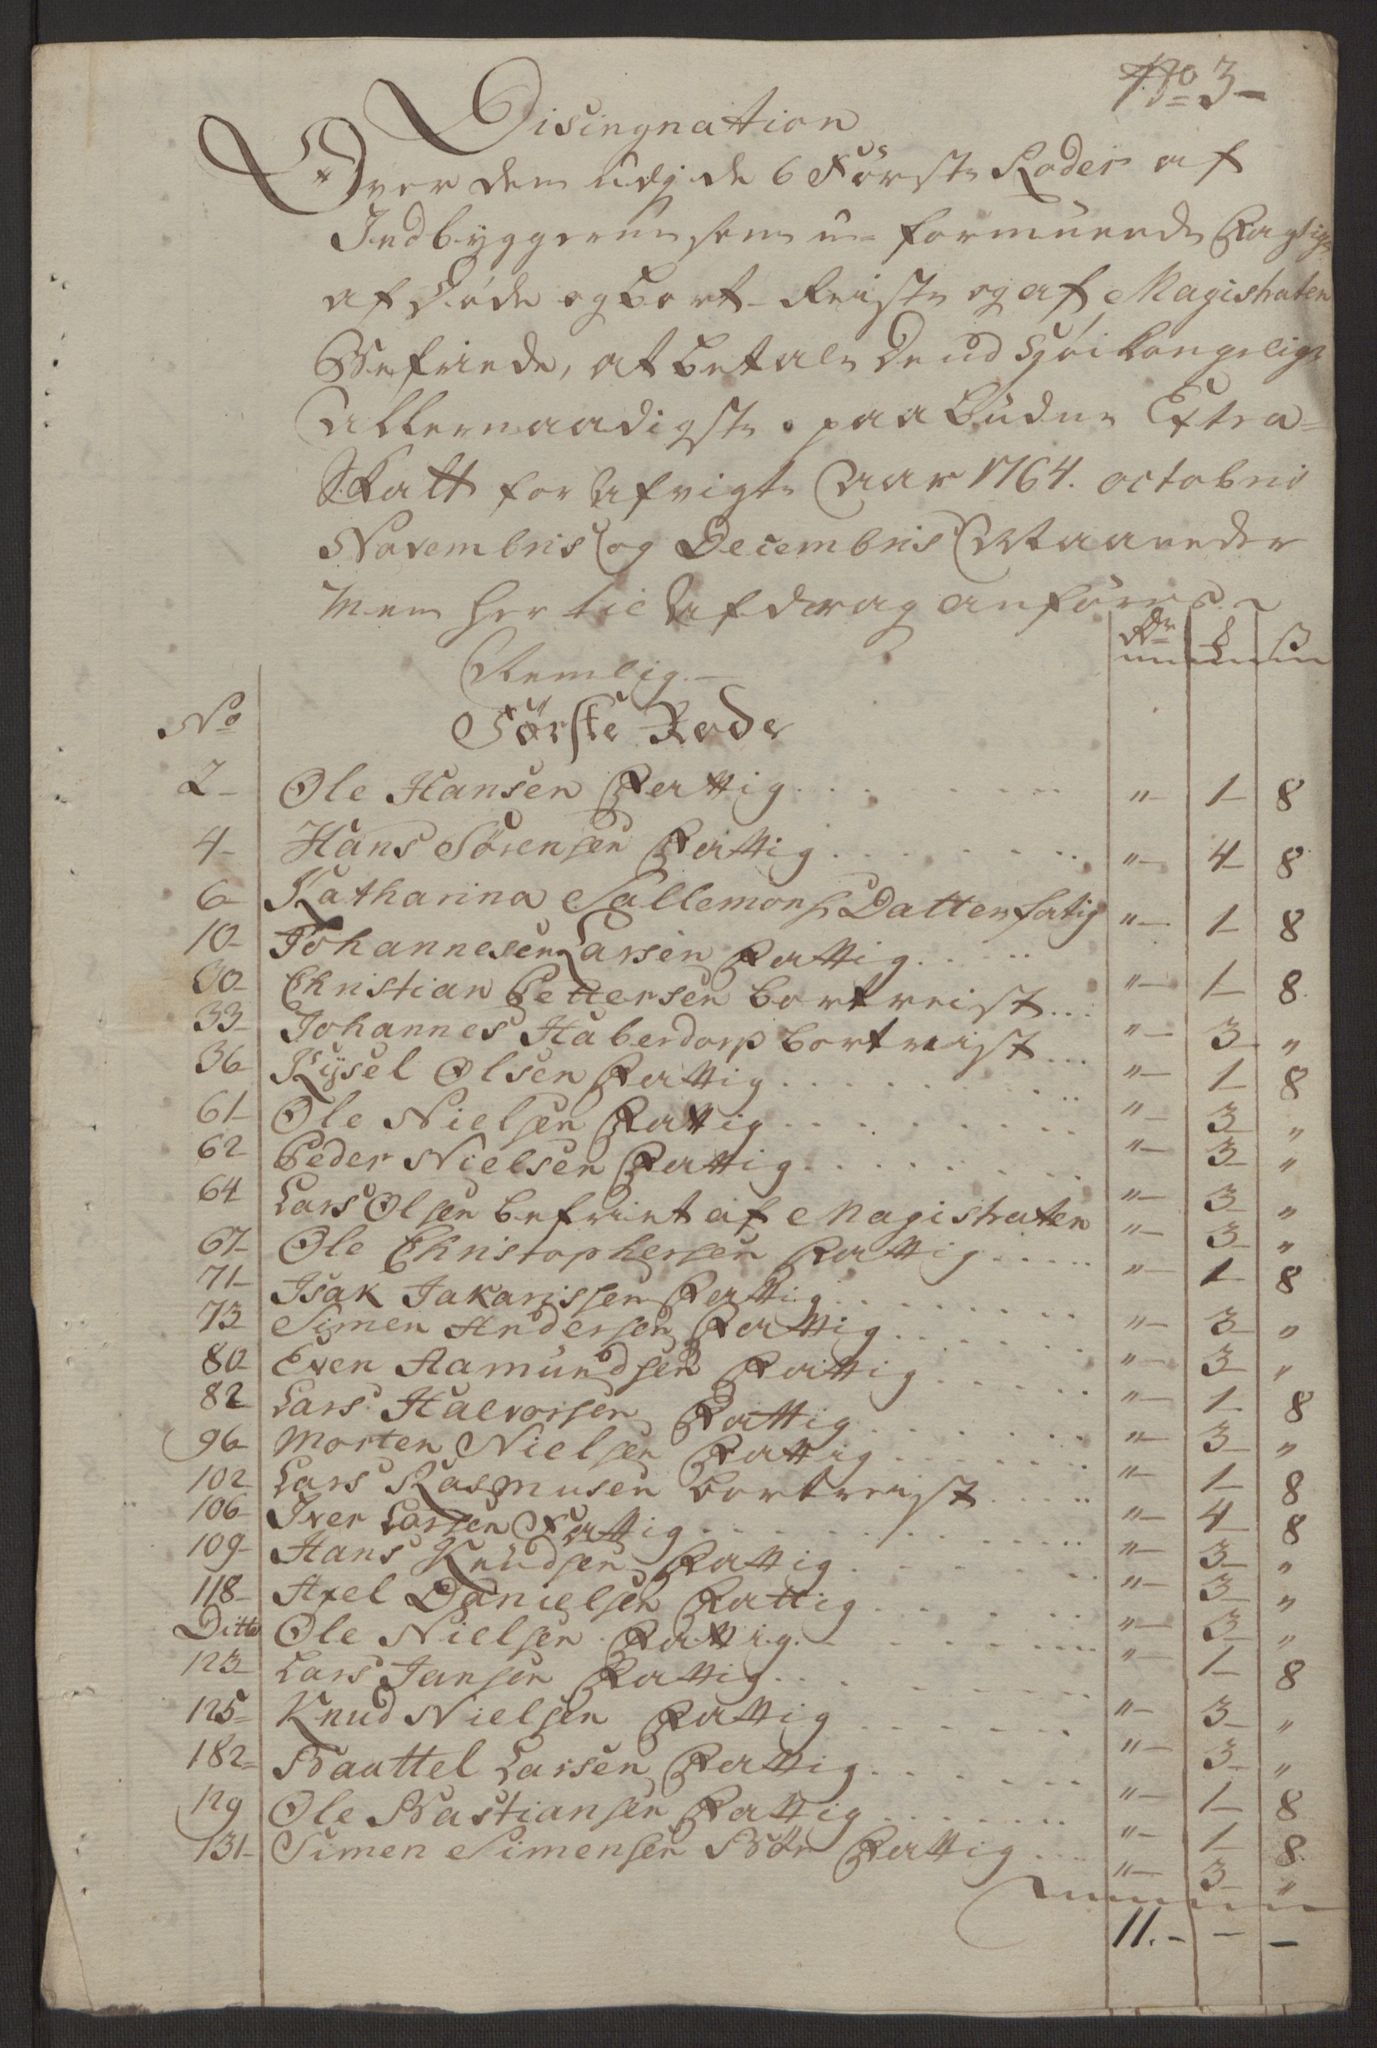 No 3-
Disingnation
Over dem udj de 6 Første Roder af
Indbyggerne som u-formuende
af Døde og bort-Reiste og af Magistraten
Befriede, at betale De ud
Allernaadigste paabudne Extra-
Skatt for Afvigte Aar 1764. octobris
Novembris og Decembris Maaneder
som her til Afdrag anføres
Rdr ß
Nemlig.-
No Første Rode
2- Ole Hansen Fattig " 1 8
4- Hans Sørensen Fattig " 4 8
6- Katharina Sallemons Datter fatig " 1 8
10- Johannesen Larsen Fattig " 1 8
30- Christian Pettersen bortreist " 3 "
33- Johannes Haberdorp bortreist " 1 8
36- Kysel Olsen Fattig " 3 "
61- Ole Nielsen Fattig " 3 "
62 Peder Nielsen Fattig " 3 "
64 Lars Olsen befriet af Magistraten " 3 "
67- Ole Christophersen Fattig " 1 8
71- Isak Jakarissen Fattig " 3 "
73 Simen Andersen Fattig " 3 "
80- Even Aamundsen Fattig " 1 8
82 Lars Halvorsen Fattig " 3 "
96 Morten Nielsen Fattig " 1 8
102 Lars Rasmusen bortreist " 4 8
106- Iver Larsen Fattig " 3 "
109- Hans Knudsen Fattig " 3 "
118- Axel Danielsen Fattig " 3 "
Ditto Ole Nielsen Fattig " 1 8
123- Lars Jansen Fattig " 3 "
125- Knud Nielsen Fattig " 3 "
182- Baattel Larsen Fattig " 1 8
129 Ole Bastiansen Fattig " 1 8
131- Simen Simensen Bør Fattig " 3 "
11.- - -